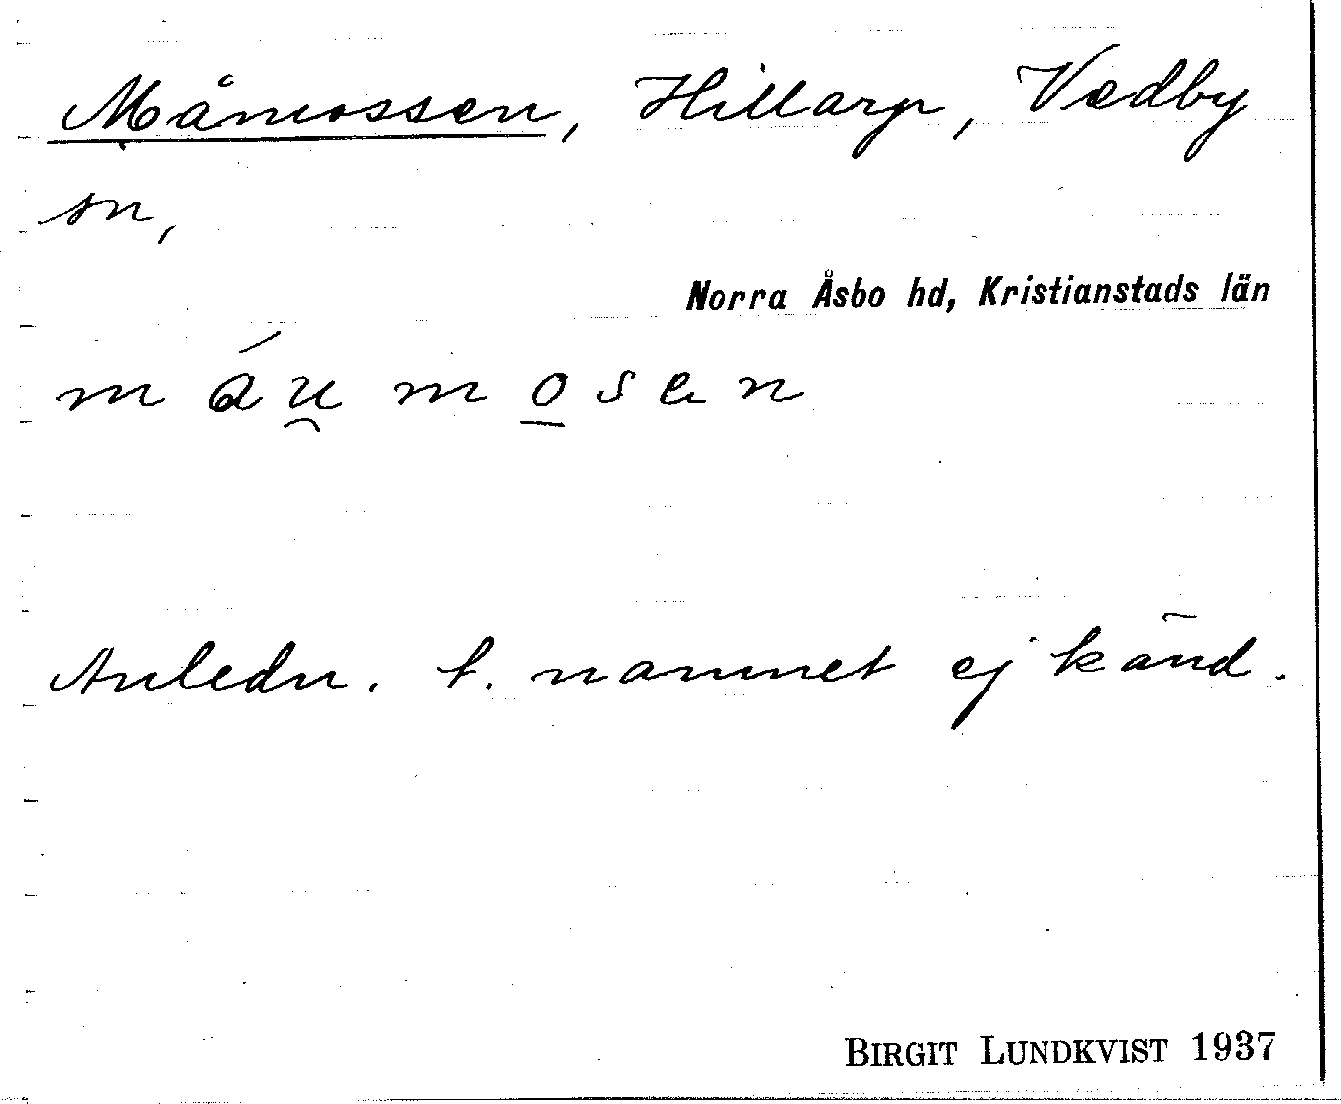 Måmossen, Hillarp, Vedby
sn,
Norra Åsbo hd, Kristianstads län
máu̯mo̲sen
Anledn. t. namnet ej känd.
BIRGIT LUNDKVIST 1937